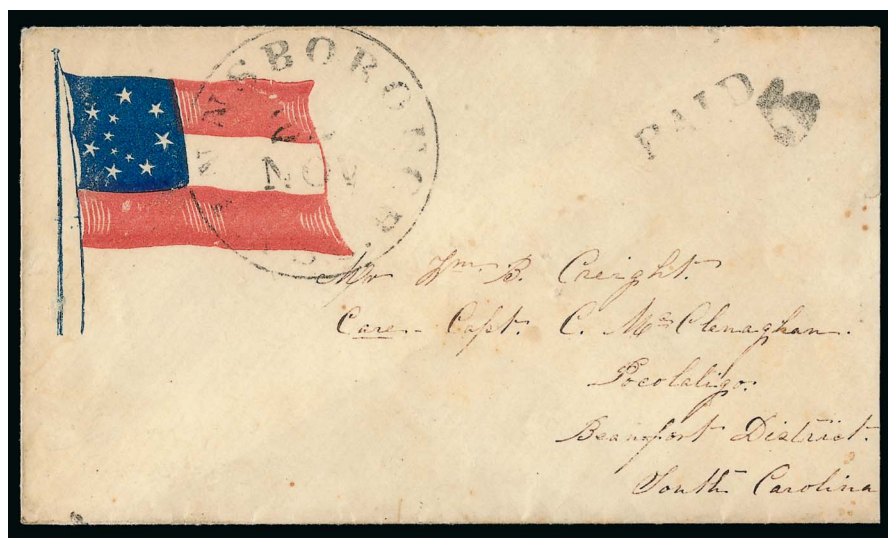 NNSBORO
NOV
PAID
Mr Wm. B. Creight.
Care - Capt. C. McClenaghan.
Pocotaligo.
Beaufort District.
South Carolina